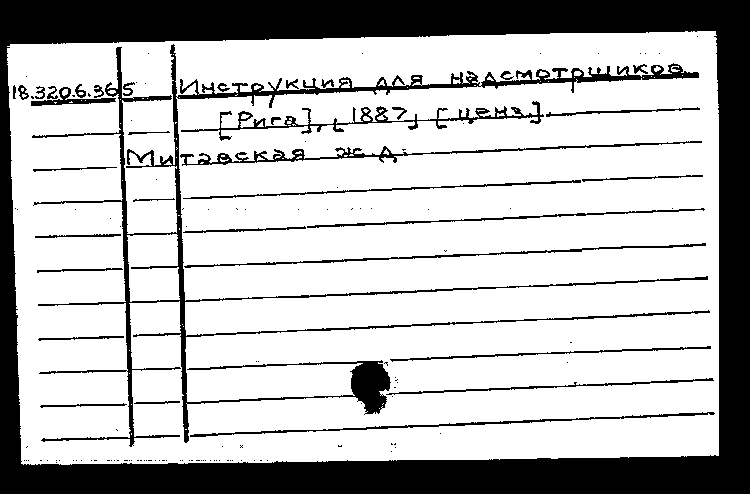 18.320.6.365 Инструкция для надсмотрщиков.
[Рига], 1887, [ценз.].
Митавская ж.д.